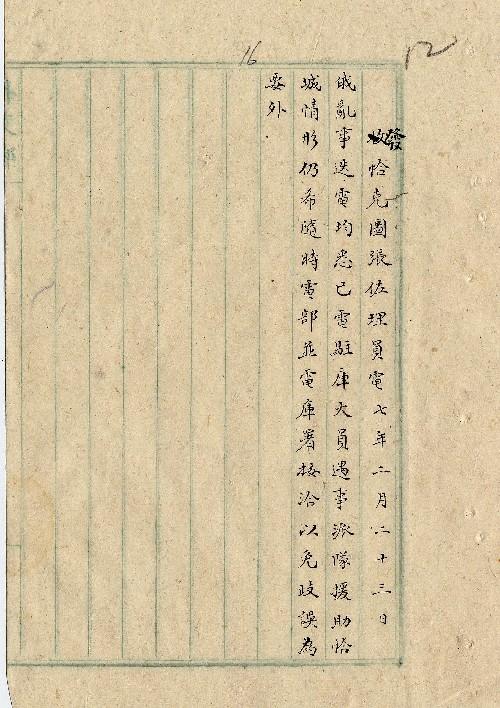 12
16
發恰克圖張佐理員電七年二月二十三日
俄亂事迭電均悉已電駐庫大員遇事派隊援助恰
城情形仍希隨時電部並電庫署接洽以免歧誤為
要外